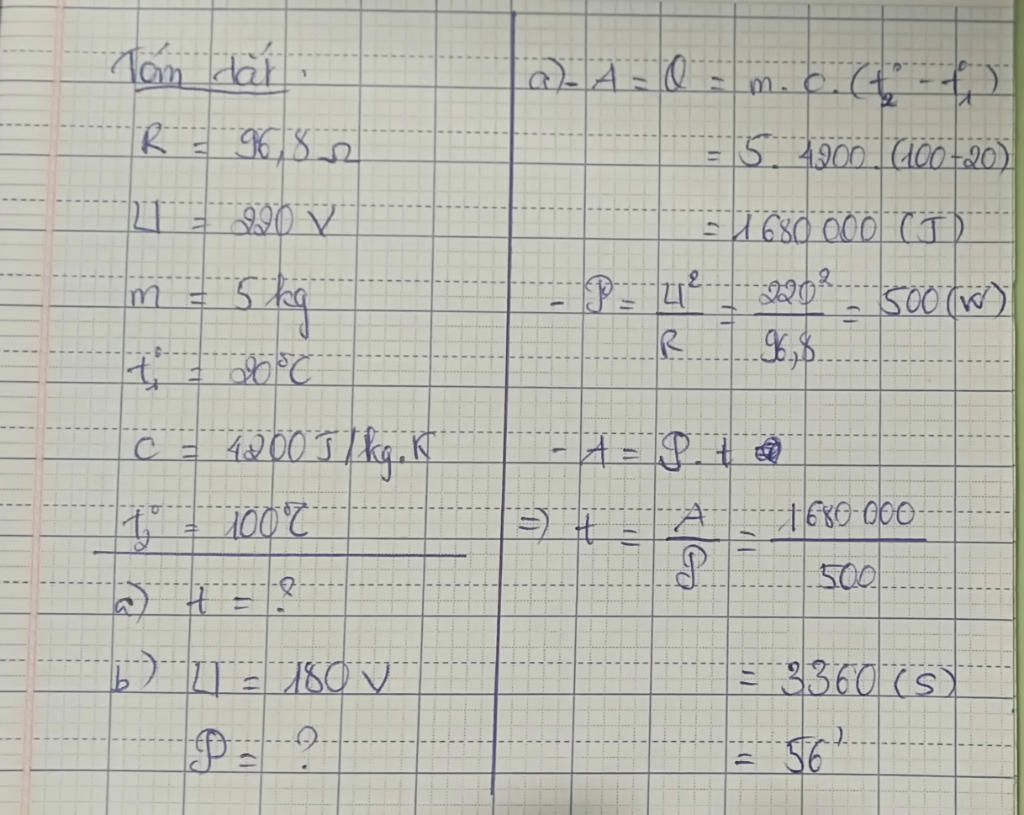 Tóm tắt.
R = 96,8 Ω
U = 220 V
m = 5 kg
t₁° = 20°C
C = 4200 J/kg.K
t₂° = 100°C
a) t = ?
b) U = 180 V
P = ?
a) - A = Q = m. c. (t₂° - t₁°)
= 5. 4200. (100-20)
= 1680 000 (J)
- P = U²/R = 220²/96,8 = 500 (W)
- A = P. t
=> t = A/P = 1680 000/500
= 3360 (s)
= 56'